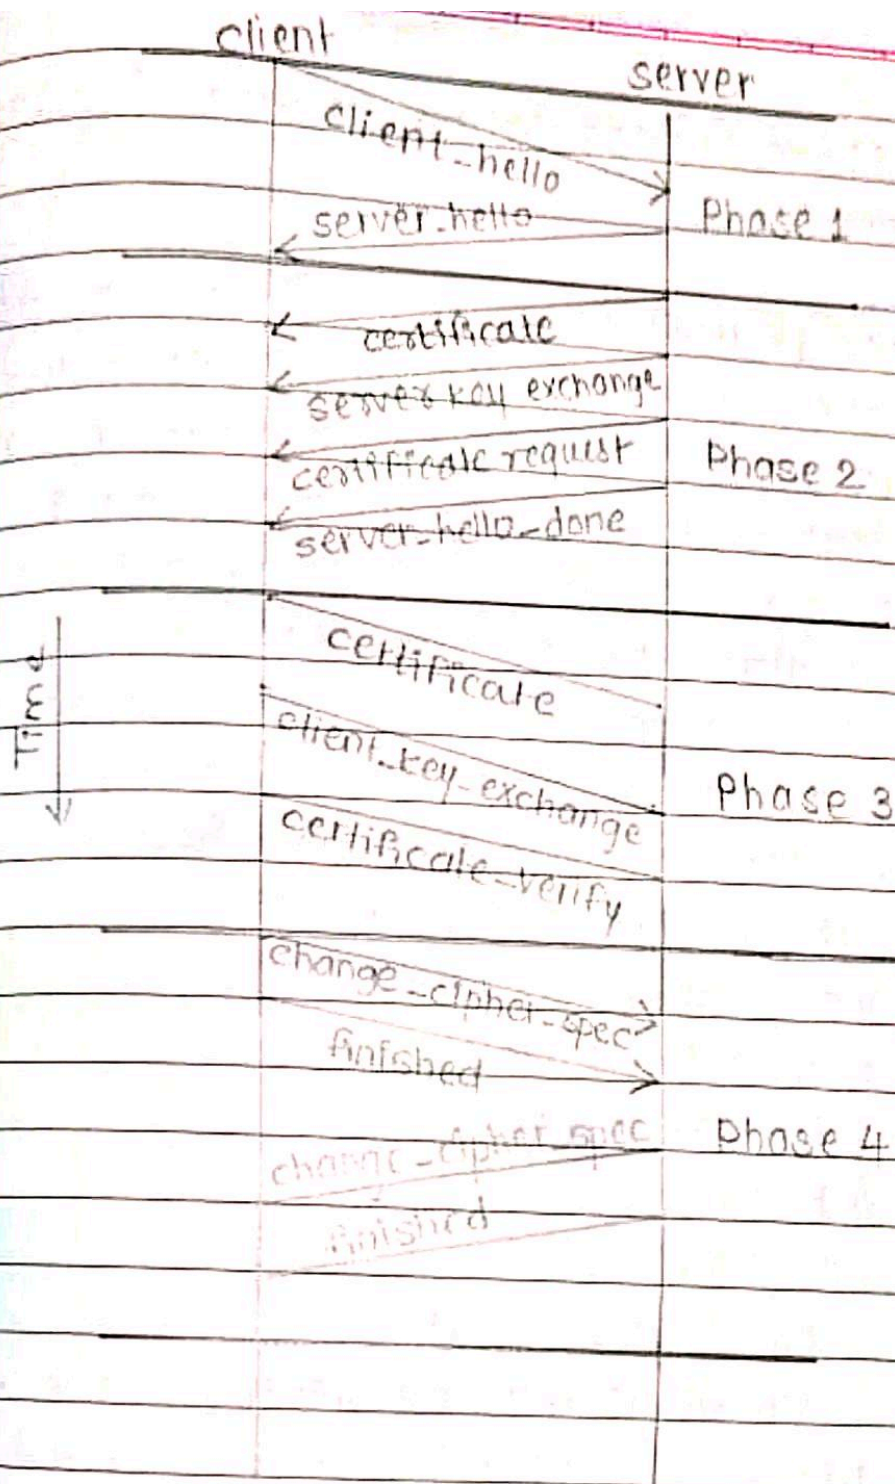 client
server
client_hello
server_hello
Phase 1
certificate
server key exchange
certificate request
Phase 2
server_hello_done
Time
certificate
client_key_exchange
Phase 3
certificate_verify
change_cipher_spec
finished
change_cipher_spec
Phase 4
finished